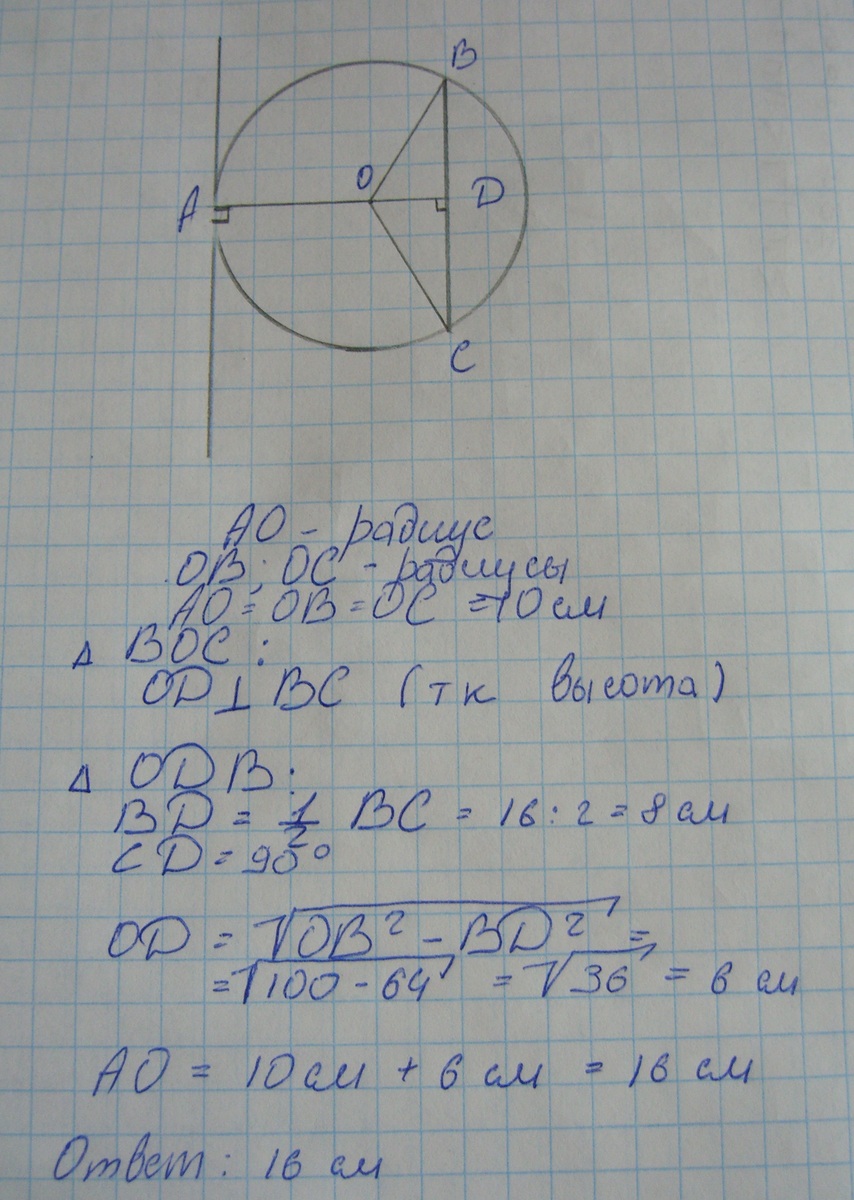 B
O
A
D
C
AO - радиус
OB; OC - радиусы
AO = OB = OC = 10 см
△ BOC :
OD ⊥ BC (тк высота)
△ ODB :
BD = 1/2 BC = 16 : 2 = 8 см
∠D = 90°
OD = √OB² - BD² =
= √100 - 64 = √36 = 6 см
AO = 10 см + 6 см = 16 см
Ответ : 16 см